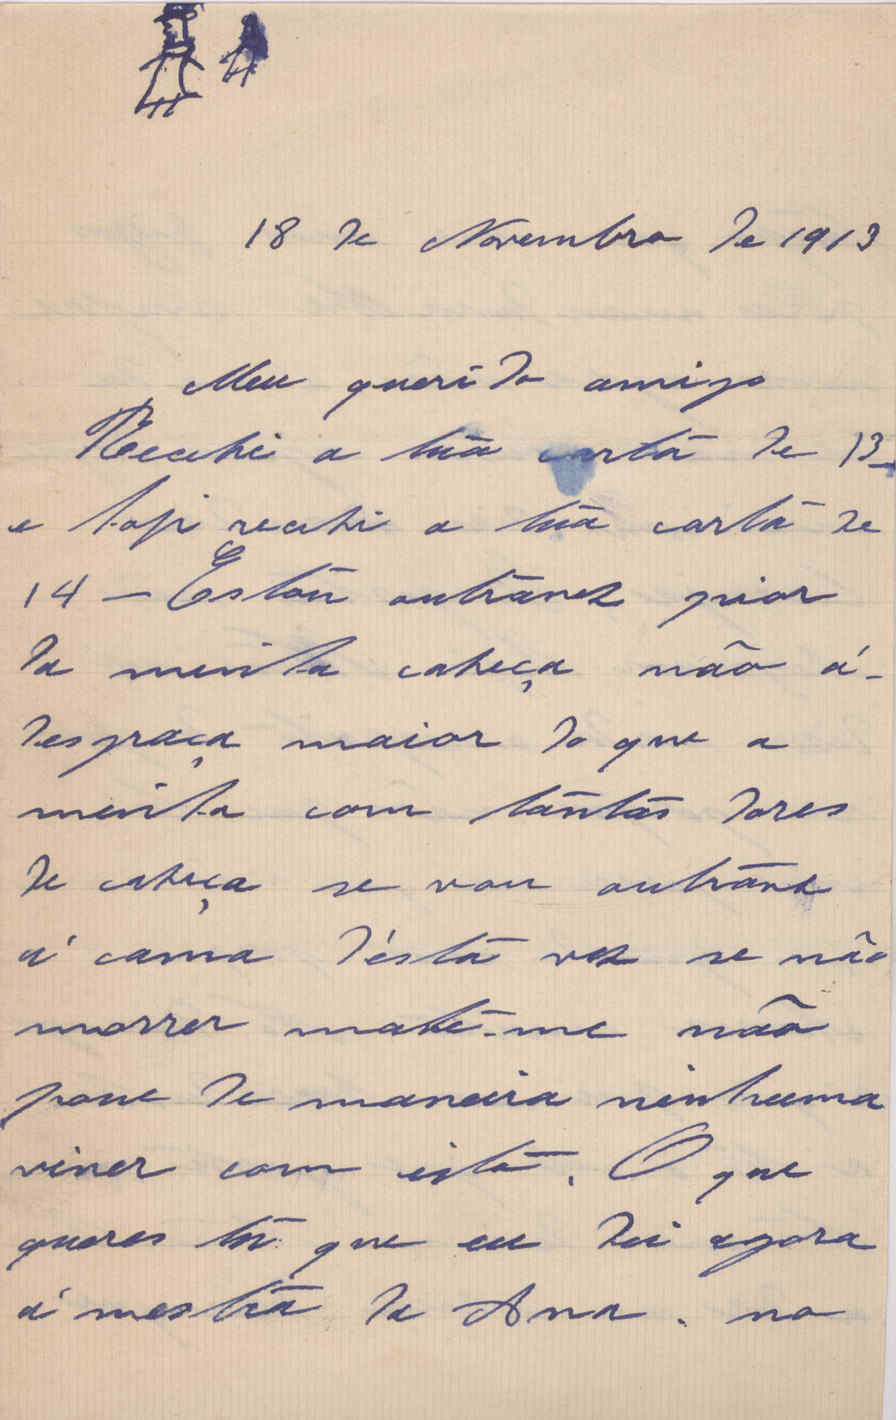 18 de Novembro de 1913
Meu querido amigo
Recebi a tua carta de 13
e hoje recebi a tua carta de
14 — Estou outravez pior
da minha cabeça não á-
desgraça maior do que a
minha com tantas dores
de cabeça se vou outravez
á cama d'ésta vez se não
morrer mato-me não
posso de maneira ninhuma
viver com isto. O que
queres tu que eu dei agora
á mestra da Ana. no